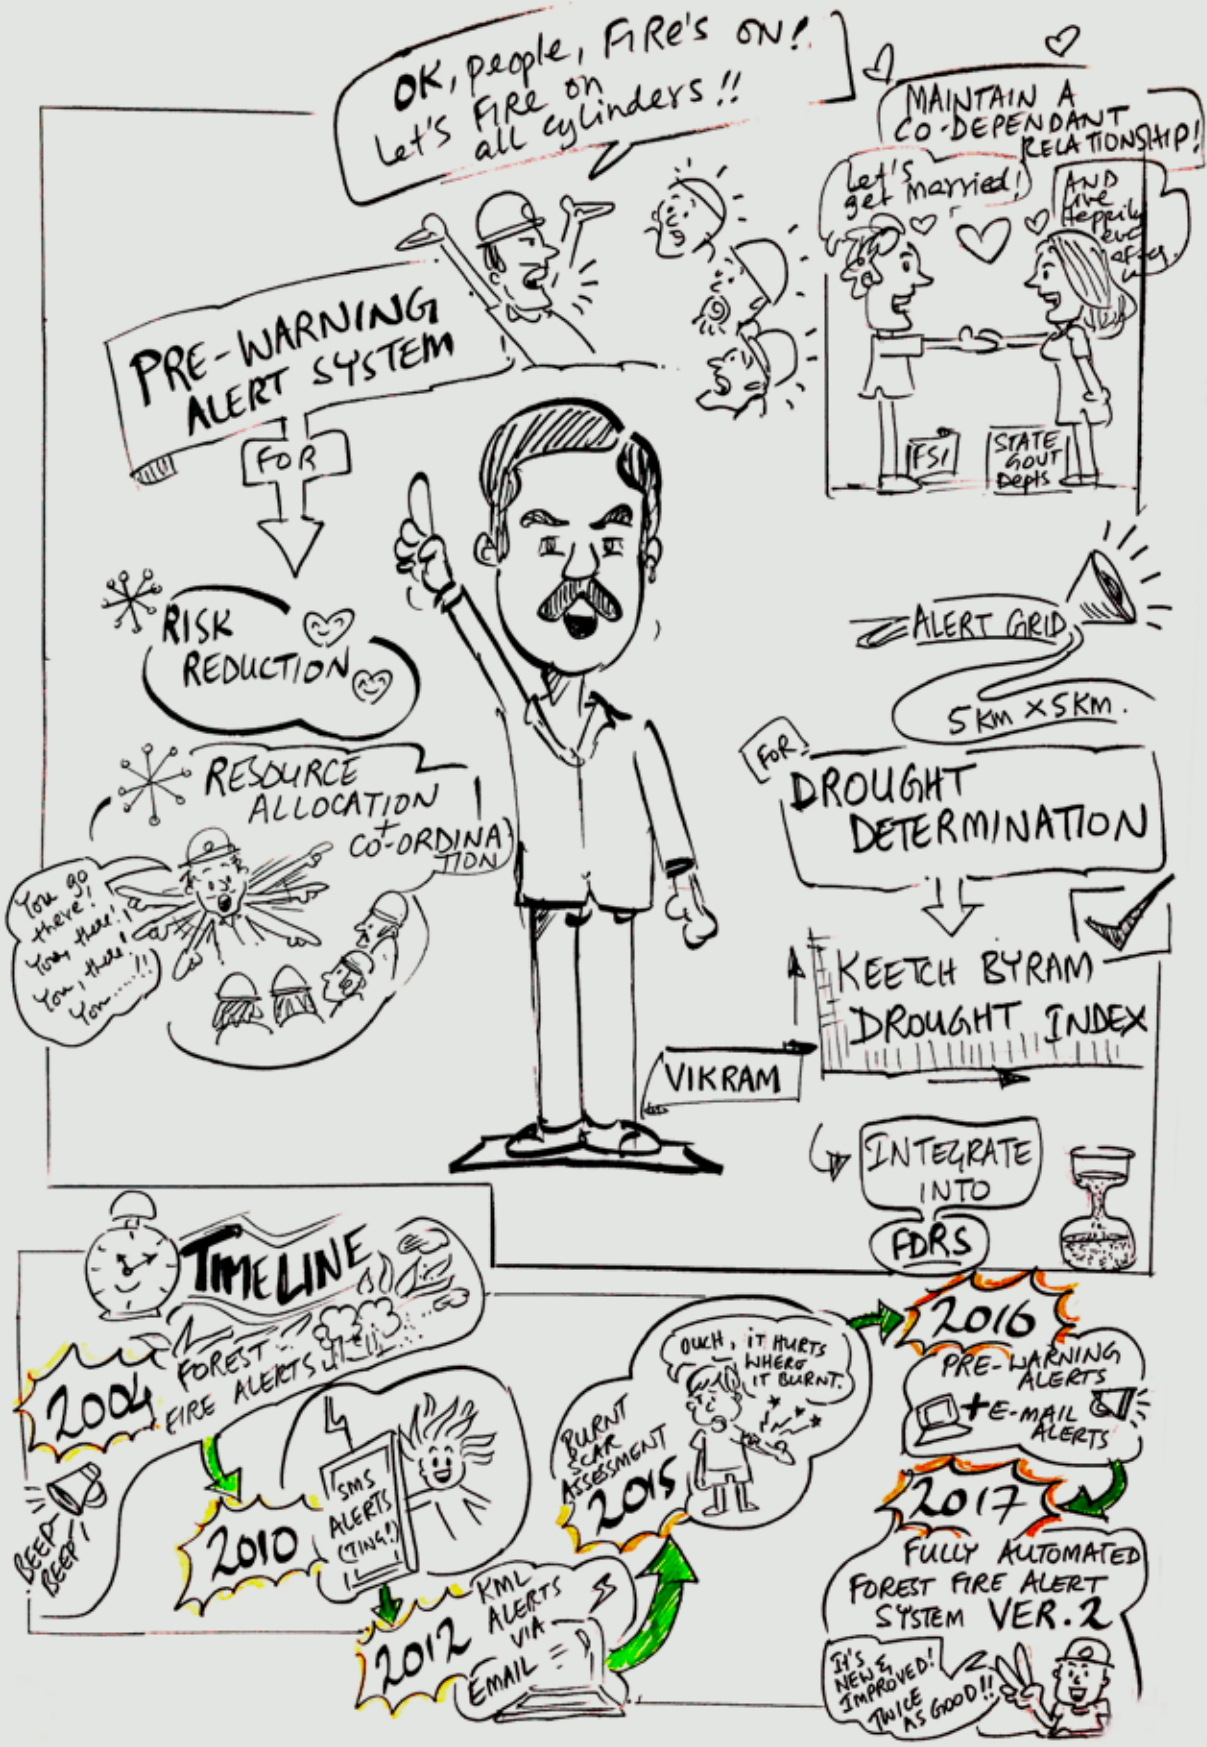 OK, people, FIRE'S ON!
Let's FIRE on
all cylinders!!
MAINTAIN A
CO-DEPENDANT
RELATIONSHIP!
Let's
get married!
AND
live
Happily
ever
after.
FSI
STATE
GOVT
Depts
PRE-WARNING
ALERT SYSTEM
FOR
RISK
REDUCTION
RESOURCE
ALLOCATION
+
CO-ORDINA
TION
You go
there!
You, there!!
You, there!
You.....!!
ALERT GRID
5 KM X 5 KM.
FOR
DROUGHT
DETERMINATION
KEETCH BYRAM
DROUGHT INDEX
VIKRAM
INTEGRATE
INTO
FDRS
TIMELINE
2004
FOREST
FIRE ALERTS
BEEP-
BEEP!
2010
SMS
ALERTS
(TING!)
2012
KML
ALERTS
VIA
EMAIL
2015
BURNT
SCAR
ASSESSMENT
OUCH, IT HURTS
WHERE
IT BURNT.
2016
PRE-WARNING
ALERTS
+ E-MAIL
ALERTS
2017
FULLY AUTOMATED
FOREST FIRE ALERT
SYSTEM VER.2
It's
NEW &
IMPROVED!
TWICE
AS GOOD!!